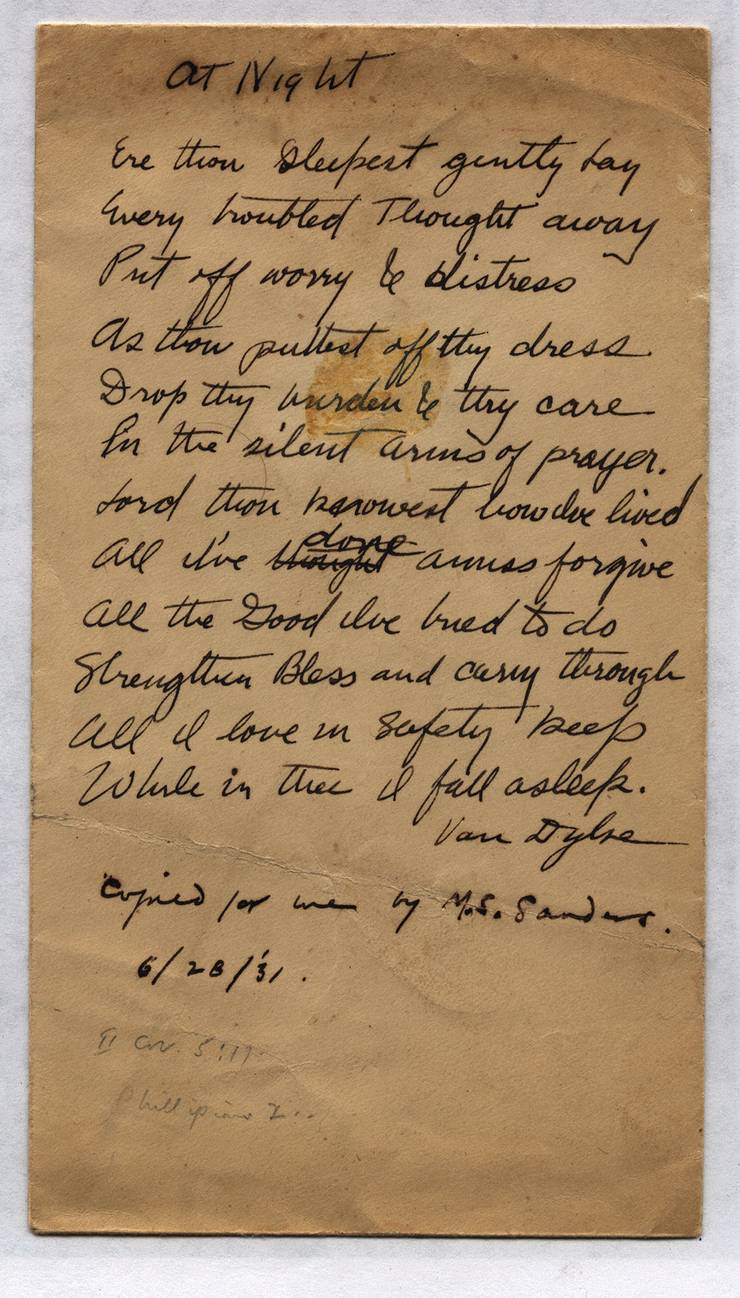 At Night
Ere thou Sleepest gently lay
Every troubled Thought away
Put off worry & distress
As thou puttest off thy dress.
Drop thy burden & thy care
In the silent arms of prayer.
Lord thou knowest how I've lived
All I've thought done amiss forgive
All the Good I've tried to do
Strengthen Bless and carry through
All I love in Safety keep
While in thee I fall asleep.
Van Dyke
Copied for me by M.S. Sanders.
6/28/'31.
II Cor. 5:17
Phillipians